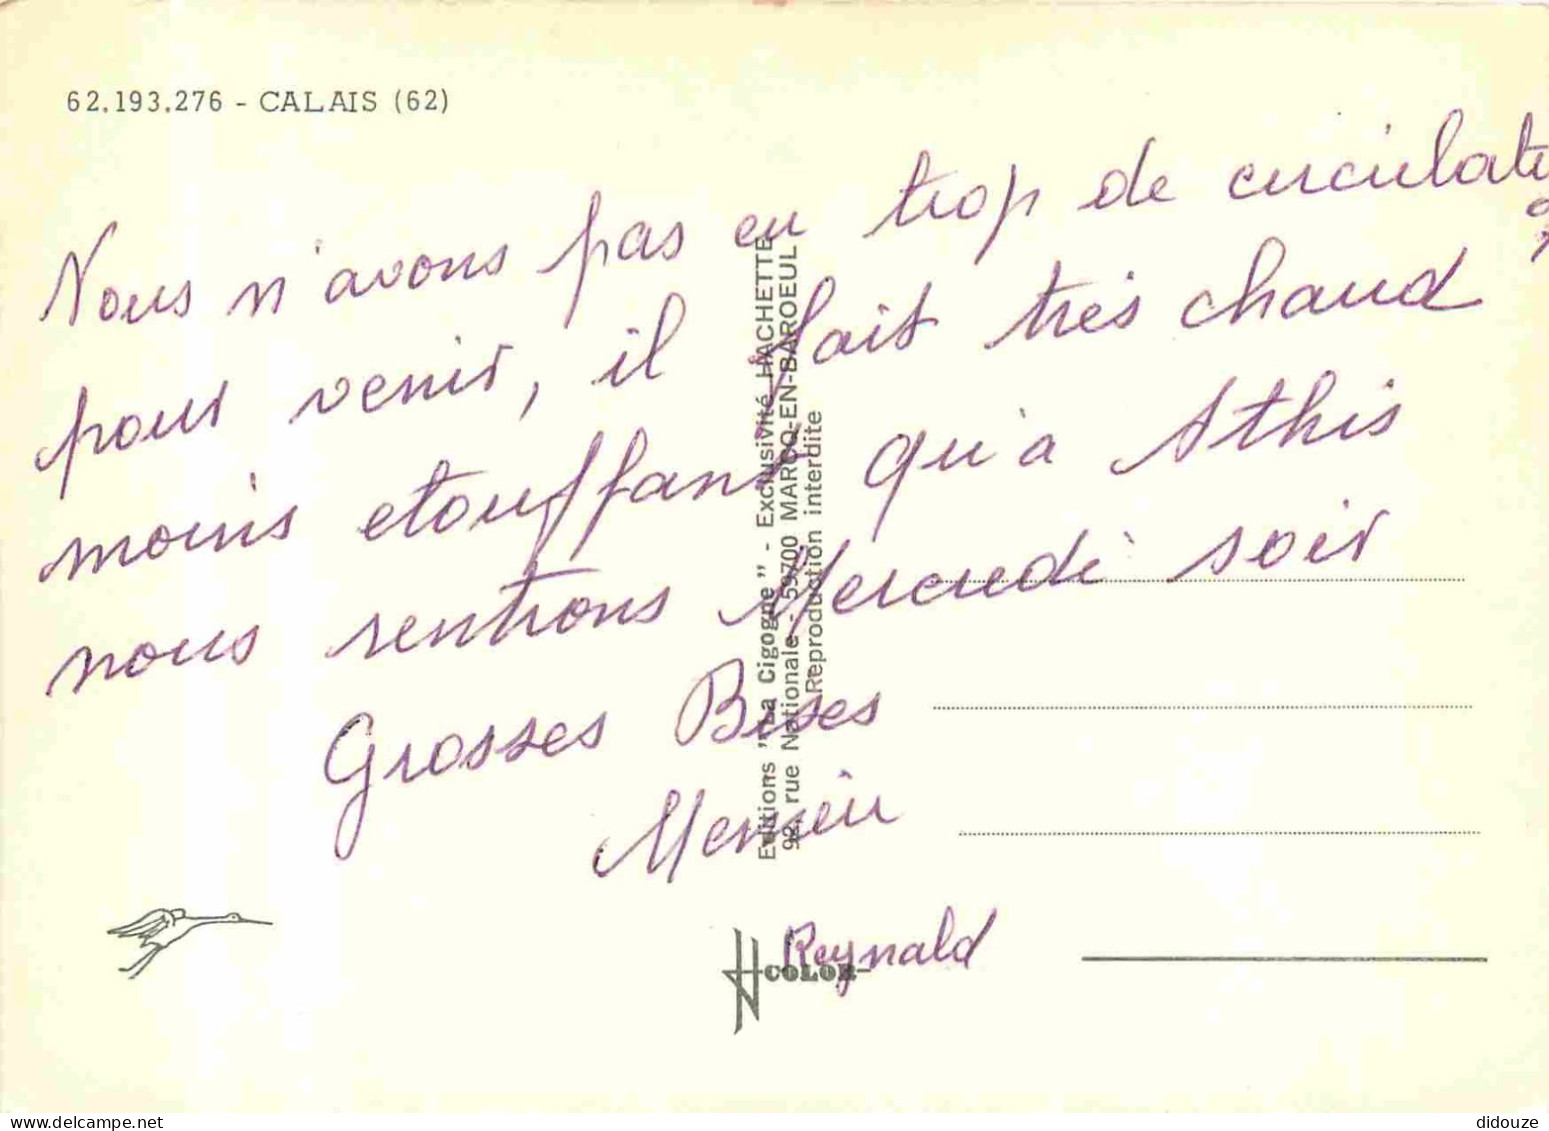 62.193.276 - CALAIS (62)
Nous n'avons pas eu trop de circulation
pour venir, il fait très chaud
moins etouffant qu'à Athis
nous rentrons Mercredi soir
Grosses Bises
Reynald
Editions "La Cigogne" - Exclusivité HACHETTE
92, rue Nationale - 59700 MARCQ-EN-BAROEUL
Reproduction interdite
COLOR
didouze